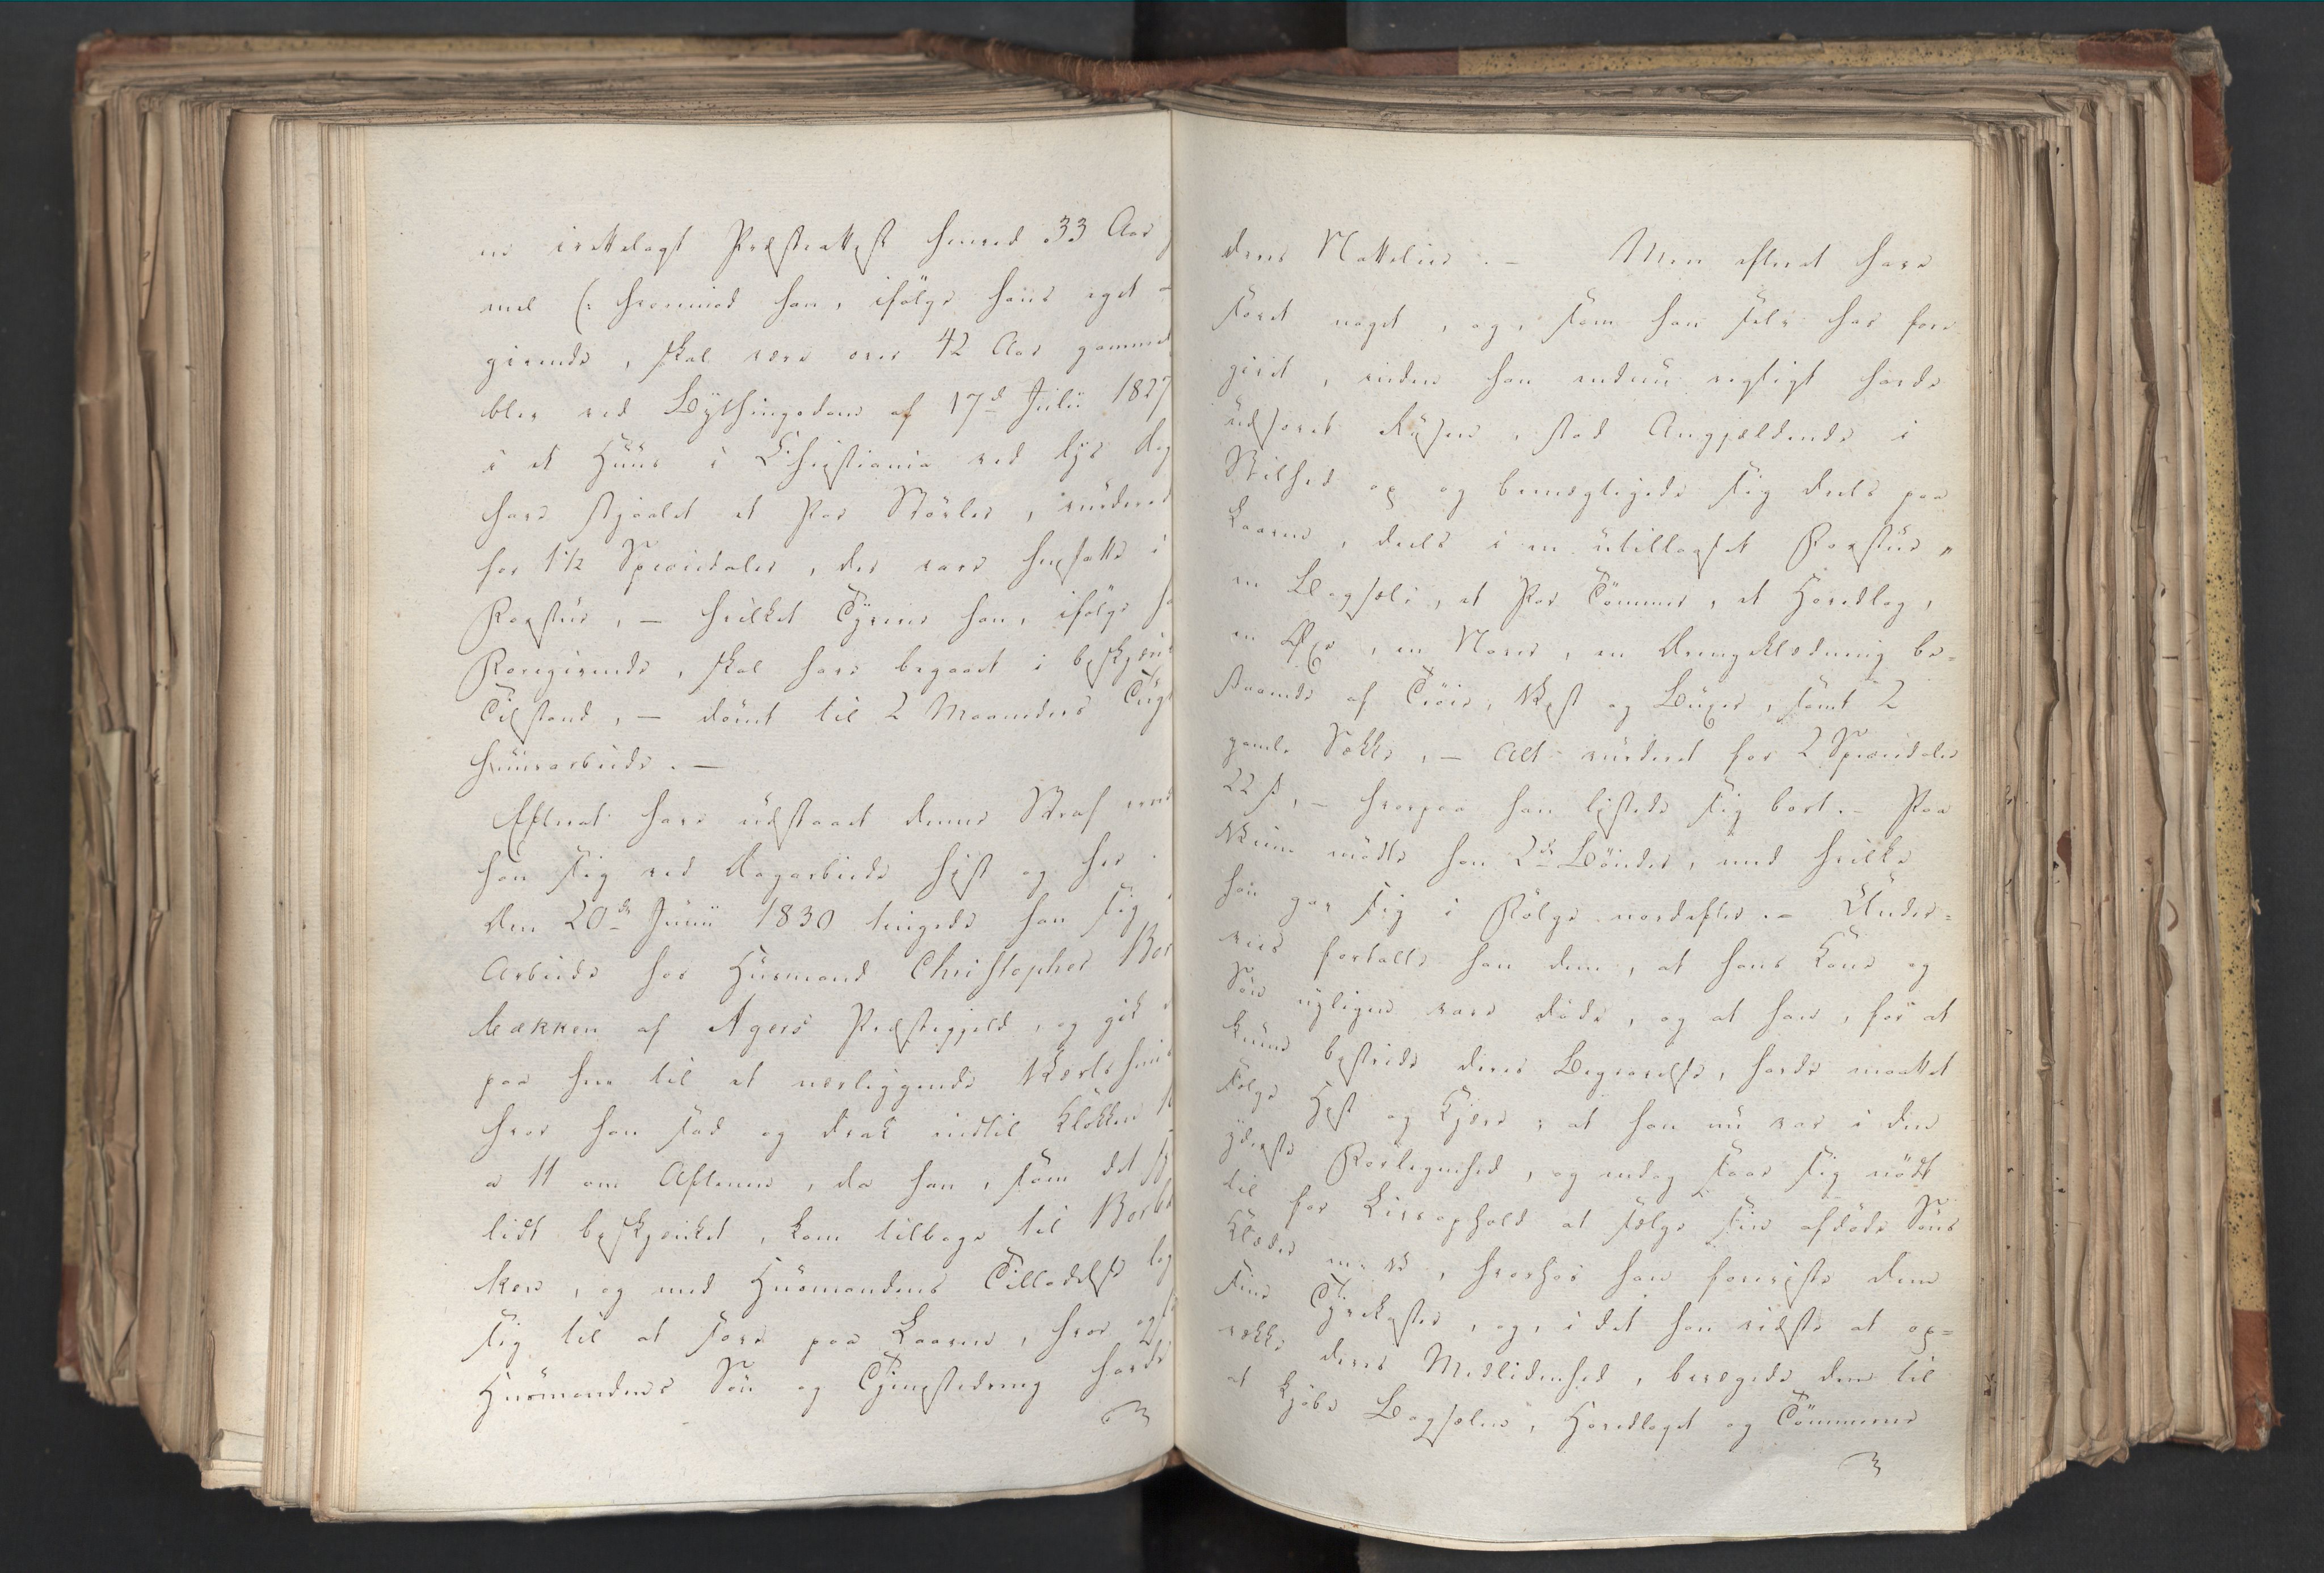 en irettelagt Præsteattest henved 33 Aar
mel (: hvorimod han, ifølge hans eget
givende, skal være over 42 Aar gammel
blev ved Bythingsdom af 17d Julii 1827
i et Huus i Christiania ved lys Dag
have stjaalet et Par Støvler, vurderet
for 1 1/2 Speciedaler, der vare hensatte i
Forstue, – hvilket Tyverie han, ifølge ha
Foregivende, skal have begaaet i beskjenk
Tilstand, – dømt til 2 Maaneders Tugt
huusarbeide. –
Efterat have udstaaet denne Straf ern
han sig ved Dagarbeide hist og her.
Den 20de Junii 1830 tingede han sig i
Arbeide hos Huusmand Christopher Bor
bækken af Agers Præstegjeld, og gik
paa hen til et nærliggende Værtshuus
hvor han sad og drak indtil Klokken
a 11 om Aftenen, da han, som det sy
lidt beskjenket, kom tilbage til Borbæ
ken, og med Huusmandens Tilladelse lag
sig til at sove paa Laaven, hvor ogs
Huusmandens Søn og Tjenestedreng havde
deres Natteleie. – Men efterat have
sovet noget, og, som han selv har fore
givet, inden han endnu rigtigt havde
udsovet Rusen, stod Angjældende i
Stilhed op og bemægtigede sig deels paa
Laaven, deels i en utillaaset Forstue,
en Bogsæle, et Par Tømmer, et Hovedlag,
en Øxe, en Naver, en Drengeklædning be=
staaende af Trøie, Vest og Buxer, samt 2
gamle Sække, – Alt vurderet for 2 Speciedaler
22 s, – hvorpaa han listede sig bort. – Paa
Veien mødte han 2de Bønder, med hvilke
han gav sig i Følge nordefter. – Under=
veis fortalte han dem, at hans Kone og
Søn nyligen vare døde, og at han, for at
kunne bestride deres Begravelse, havde maattet
sælge Hest og Kjære; at han nu var i den
yderste Forlegenhed, og endog saae sig nødt
til for Livsophold at sælge sin afdøde Søns
Klæder m. v., hvorhos han foreviste dem
sine Tyvekoster, og, i det han vidste at op=
vække deres Medlidenhed, bevægede dem til
at kjøbe Bogsælen, Hovedlaget og Tømmene